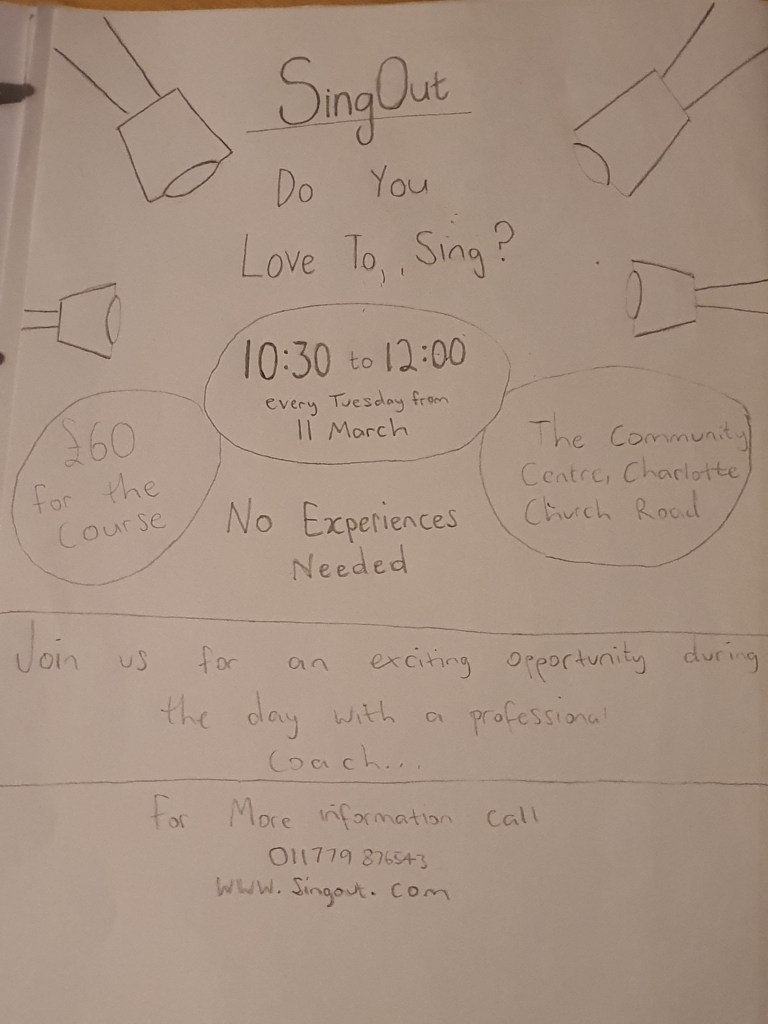 SingOut
Do You
Love To,, Sing?
10:30 to 12:00
every Tuesday from
11 March
£60
for the
Course
The Community
Centre, Charlotte
Church Road
No Experiences
Needed
Join us for an exciting opportunity during
the day with a professional
Coach...
For More information call
011779 876543
www.Singout.com